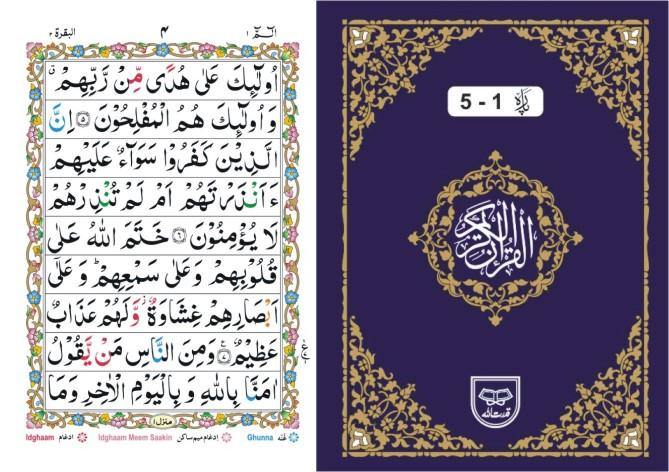 البقرة ٢
٤
الٓمّٓ ١
اُولٰٓئِكَ عَلٰى هُدًى مِّنْ رَّبِّهِمْ ۙ
وَ اُولٰٓئِكَ هُمُ الْمُفْلِحُوْنَ ﴿۵﴾ اِنَّ
الَّذِيْنَ كَفَرُوْا سَوَآءٌ عَلَيْهِمْ
ءَاَنْذَرْتَهُمْ اَمْ لَمْ تُنْذِرْهُمْ
لَا يُؤْمِنُوْنَ ﴿۶﴾ خَتَمَ اللّٰهُ عَلٰى
قُلُوْبِهِمْ وَعَلٰى سَمْعِهِمْ ؕ وَ عَلٰٓى
اَبْصَارِهِمْ غِشَاوَةٌ ؗ وَّلَهُمْ عَذَابٌ
عَظِيْمٌ ﴿۷﴾ وَمِنَ النَّاسِ مَنْ يَّقُوْلُ
اٰمَنَّا بِاللّٰهِ وَ بِالْيَوْمِ الْاٰخِرِ وَمَا
منزل ١
Idghaam ادغام
Idghaam Meem Saakin ادغام ميم ساكن
Ghunna غنّه
پارہ 1 - 5
القرآن الكريم
قدرت اللہ